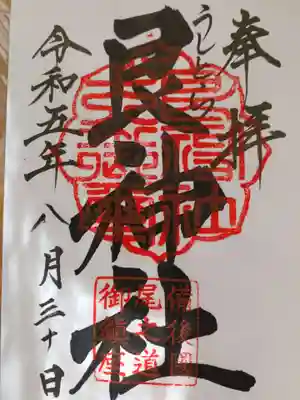 奉拝
うしとら
艮神社
備後國
尾之道
御鎮座
令和五年八月三十日